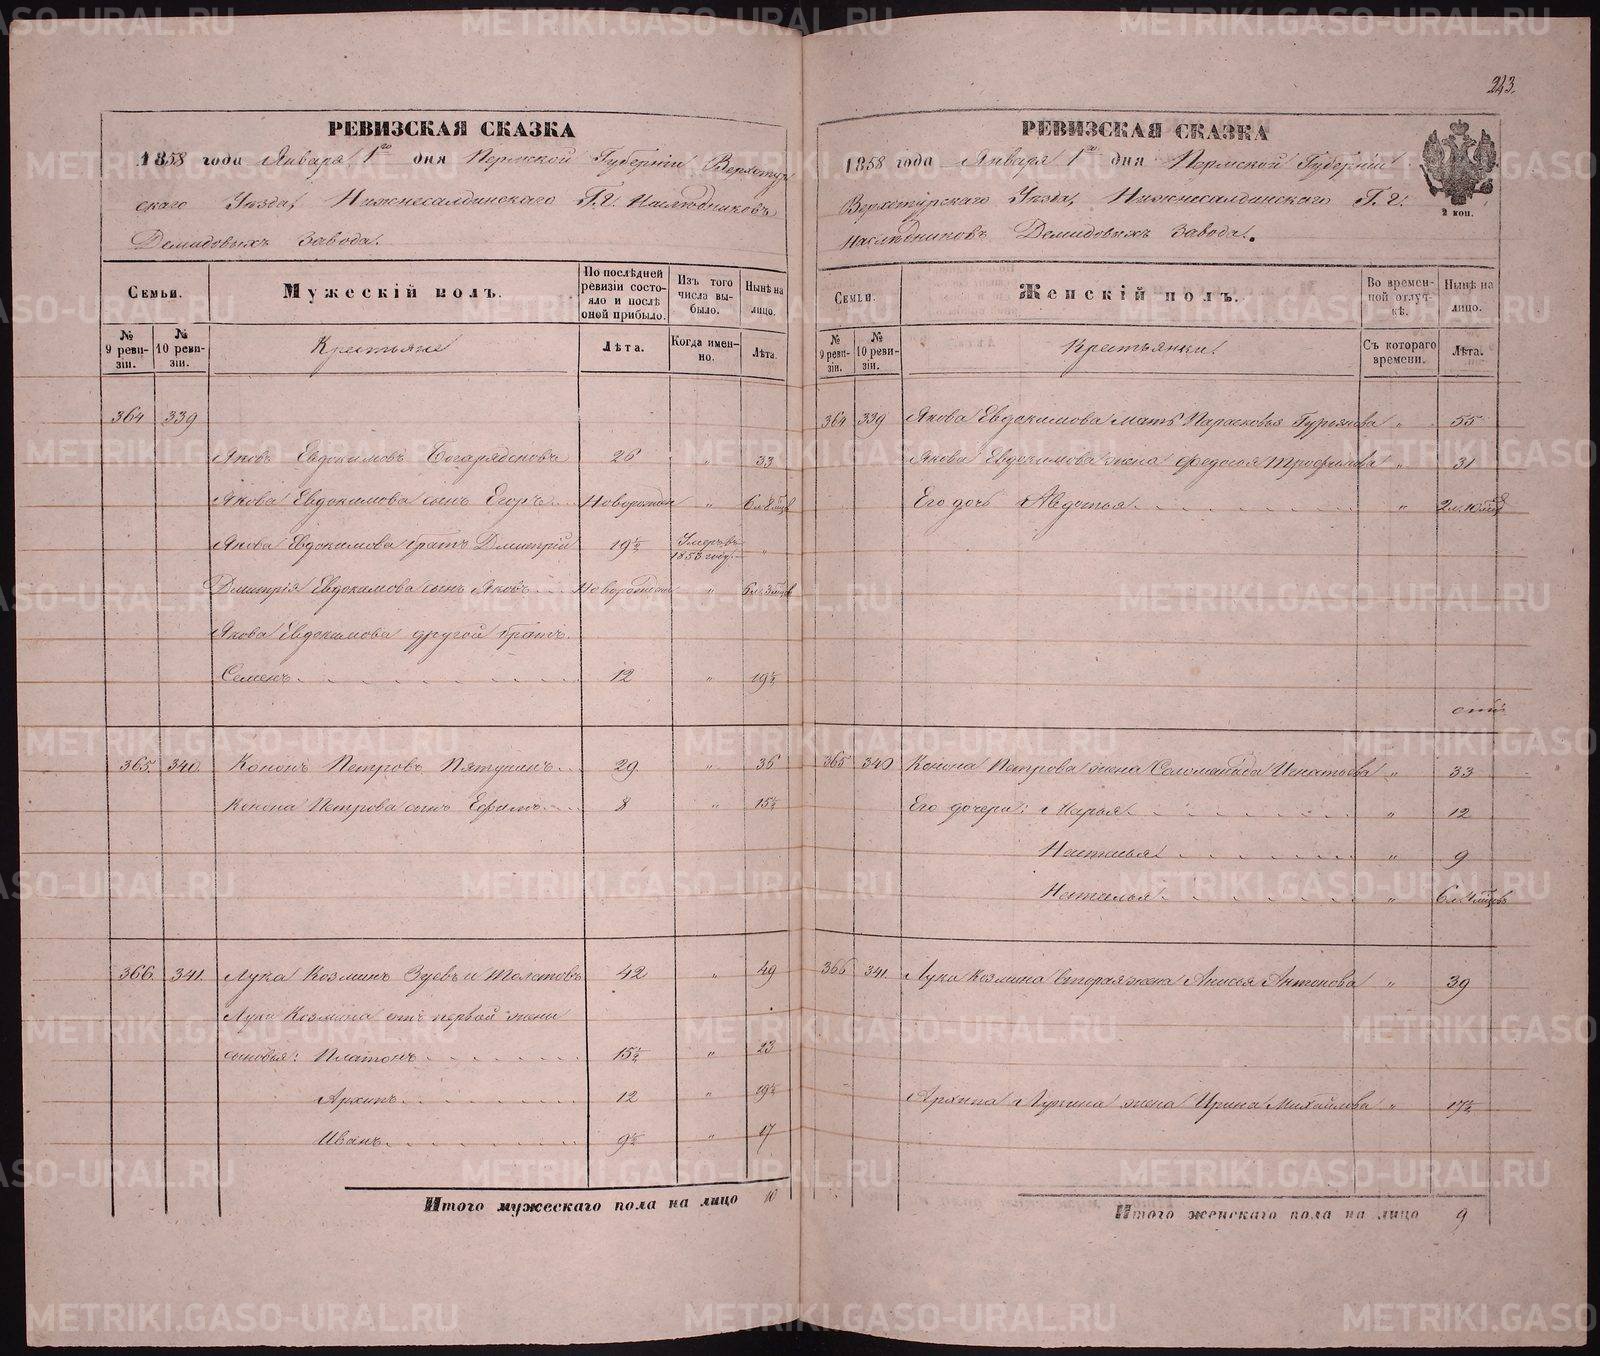 243.
РЕВИЗСКАЯ СКАЗКА
1858 года Января 1го дня Пермской Губерніи Верхотур
скаго Уѣзда, Нижнесалдинскаго Г.г. Наслѣдниковъ
Демидовыхъ завода.
Семьи.
Мужескій полъ.
По послѣдней ревизіи состояло и послѣ оной прибыло.
Изъ того числа выбыло.
Нынѣ на лицо.
№ 9 ревизіи.
№ 10 ревизіи.
Крестьяне
Лѣта.
Когда именно.
Лѣта.
364 339
Яковъ Евдокимовъ 26 " 33
Якова Евдокимова сынъ Егоръ Новорожден " 6 л. 8 мцѣв
Якова Евдокимова братъ Дмитрій 19½ Умеръ въ 1853 году. "
Дмитрія Евдокимова сынъ Яковъ Новорожден "
Якова Евдокимова другой братъ
Семенъ 12 " 19½
365. 340. Кононъ Петровъ Пятунинъ 29 " 36
Конона Петрова сынъ Ефимъ 8 " 15½
366. 341. Лука Козминъ Зуевъ и 42 " 49
Луки Козмина отъ первой жены
сыновья: Платонъ 15½ " 23
Архипъ 12 " 19½
Иванъ 9½ " 17
Итого мужескаго пола на лицо 10
РЕВИЗСКАЯ СКАЗКА
1858 года Января 1го дня Пермской Губерніи
Верхотурскаго Уѣзда, Нижнесалдинскаго Г.г.
Наслѣдниковъ Демидовыхъ завода.
2 коп.
Семьи.
Женскій полъ.
Во временной отлучкѣ.
Нынѣ на лицо.
№ 9 ревизіи.
№ 10 ревизіи.
Крестьянки
Съ котораго времени.
Лѣта.
364 339 Якова Евдокимова мать Парасковья Гурьянова " 55
Якова Евдокимова жена Федосья Трофимова " 31
Его дочь Авдотья "
365 340 Конона Петрова жена Соломанида Игнатьева " 33
Его дочери: Марья " 12
Настасья " 9
Наталья " 6 л. 4 мцѣвъ
366 341. Луки Козмина вторая жена Анисья Антонова " 39
Архипа Лукина жена Ирина Михайлова " 17½
Итого женскаго пола на лицо 9
METRIKI.GASO-URAL.RU